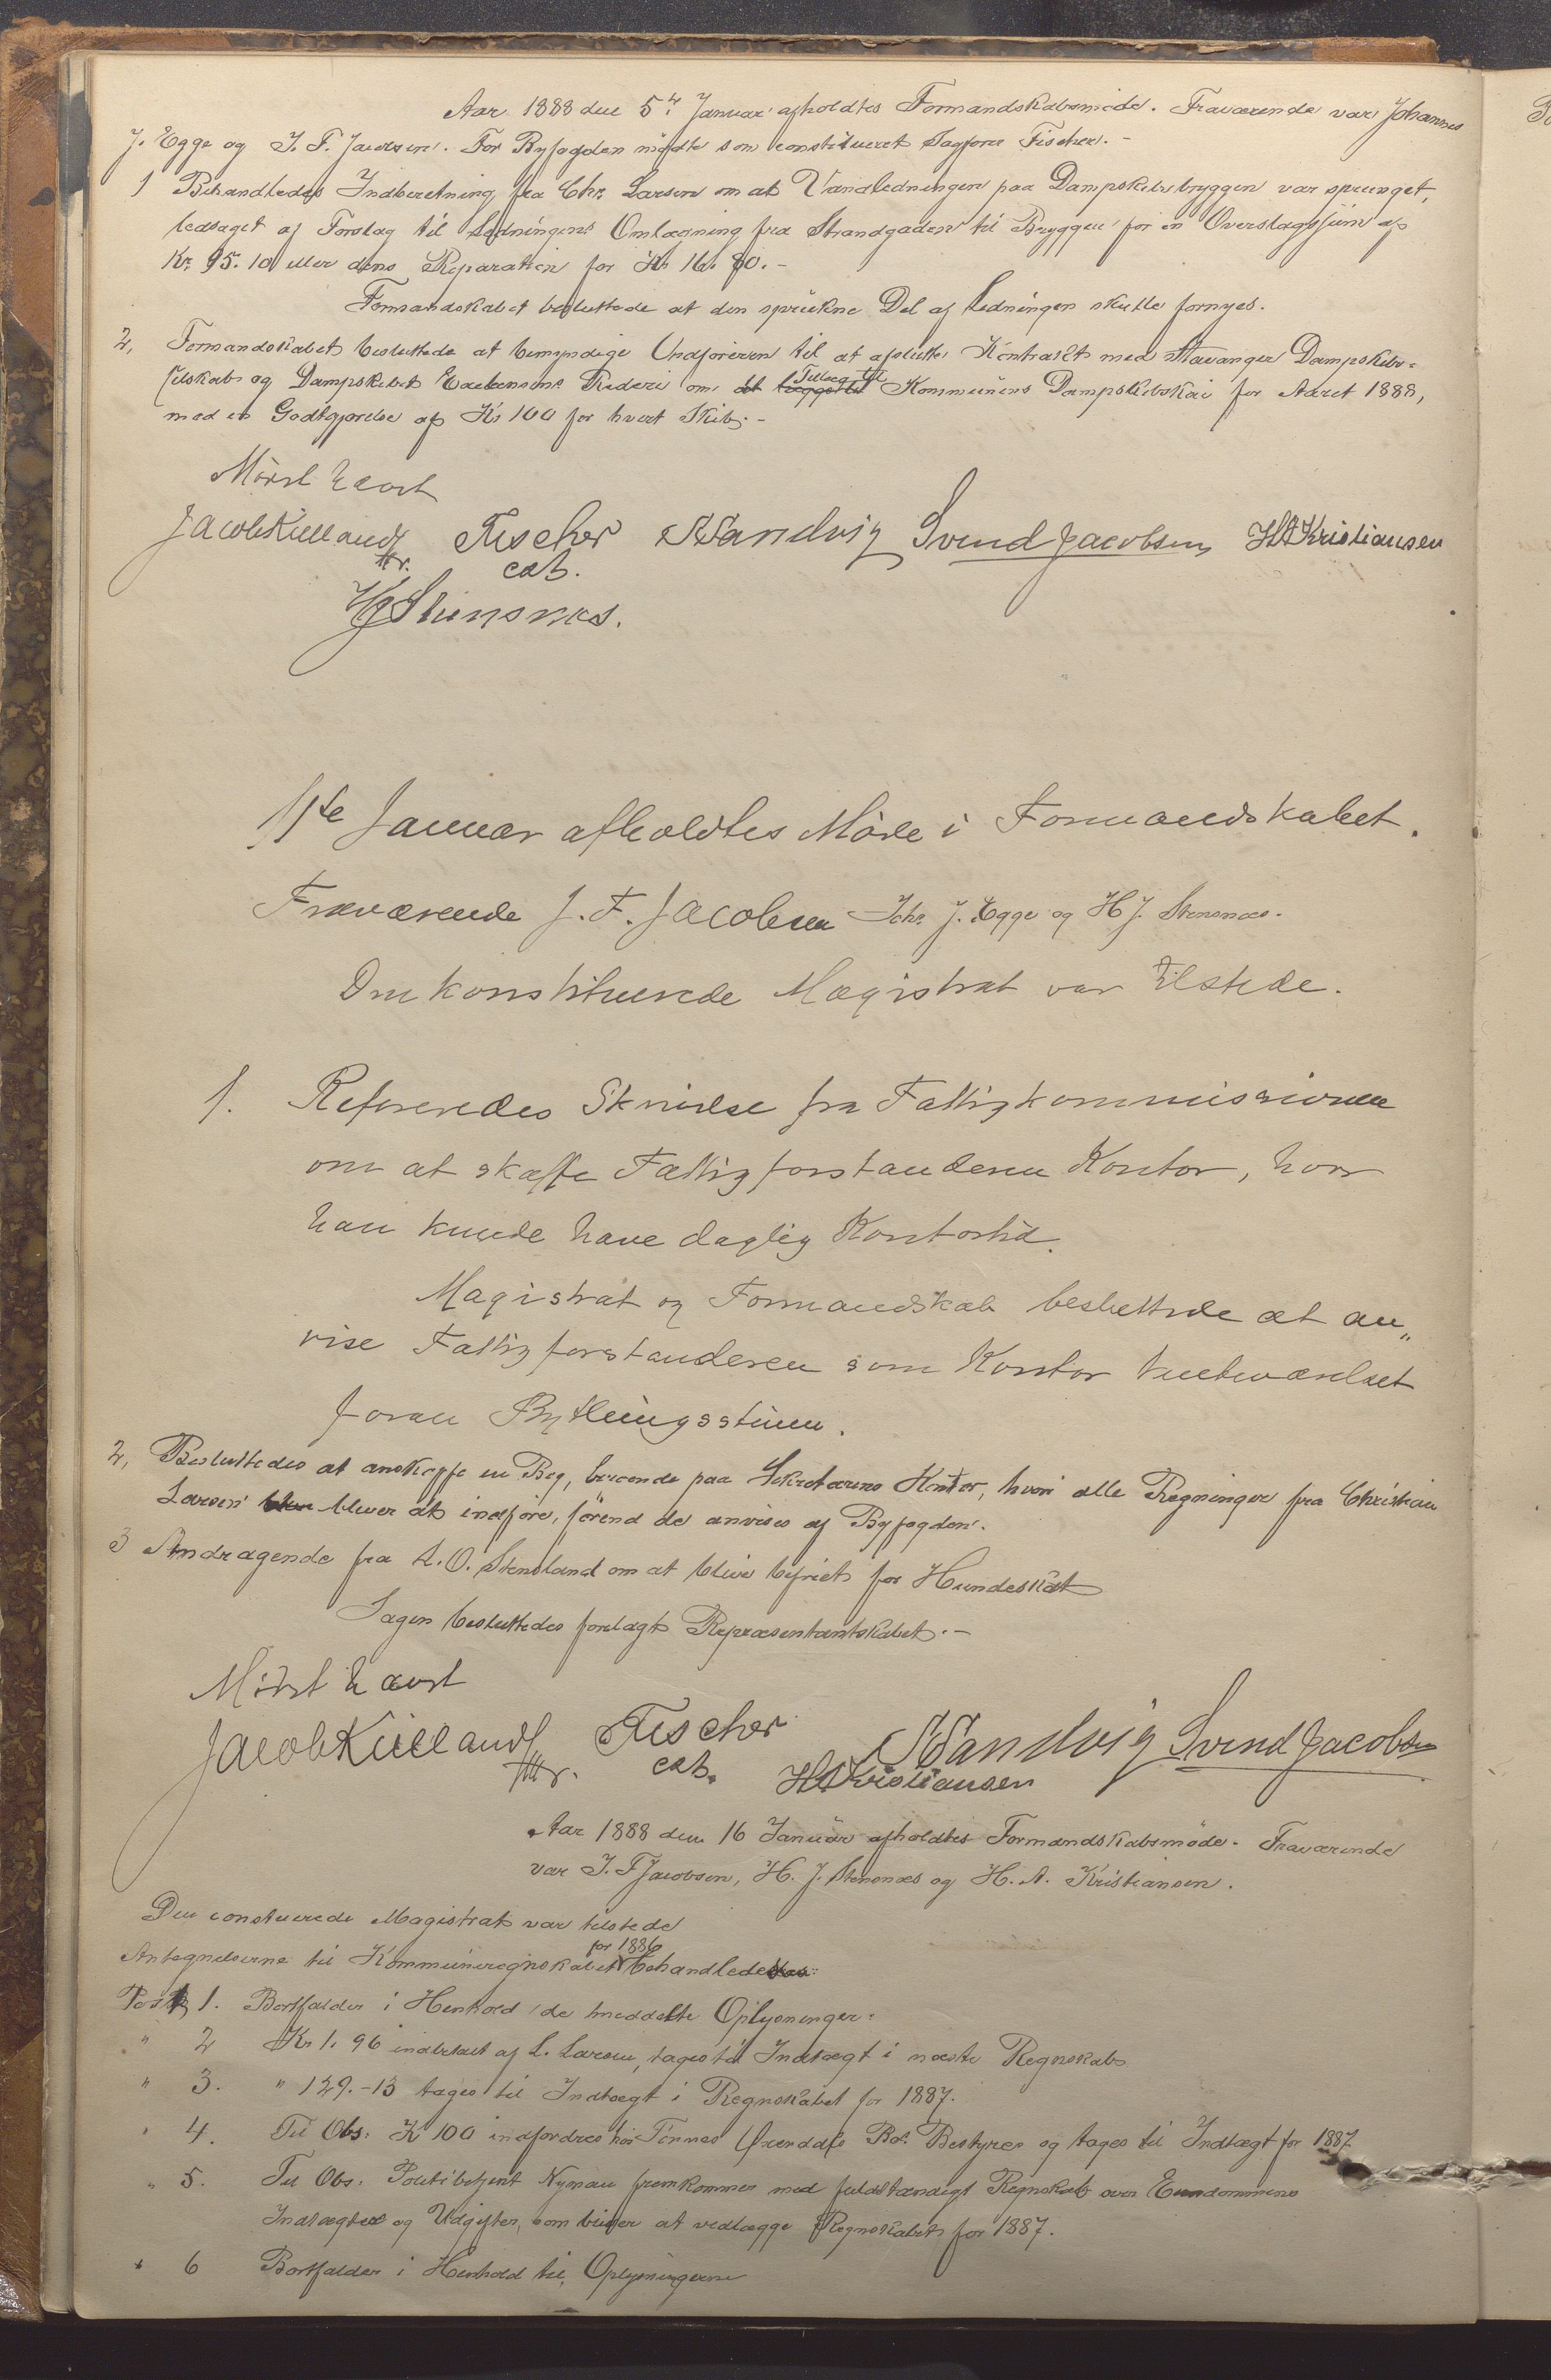 Aar 1888 den 5te Januar afholdtes Formandskabsmøde. Fraværende var Johannes
J. Egge og J. F. Jacobsen. For Byfogden mødte som constitueret Sagfører Fischer. -
1 Behandledes Indberetning fra Chr. Larsen om at Vandledningen paa Dampskibsbryggen var sprunget,
ledsaget af Forslag til Ledningens Omlægning fra Strandgaden til Bryggen for en Overslagssum af
Kr. 95.10 eller dens Reparation for Kr 16.80. -
Formandskabet besluttede at den sprukne Del af Ledningen skulde fornyes.
2, Formandskabet besluttede at bemyndige Ordføreren til at afslutte Kontrakt med Stavanger Dampskibs-
selskab og Dampskibet Rederi om Tillæg til Kommunens Dampskibskai for Aaret 1888,
med en Godtgjørelse af Kr 100 for hvert Skib. -
Mødet hævet
Jacob Kielland Fischer Sandvig Svend Jacobsen H A Kristiansen
cst.
H J Stensnæs.
11te Januar afholdtes Møde i Formandskabet.
Fraværende J. F. Jacobsen Johs J. Egge og H J. Stensnæs.
Den konstituerede Magistrat var tilstede.
1. Refereredes Skrivelse fra Fattigkommissionen
om at skaffe Fattigforstanderen Kontor, hvor
han kunde have daglig Kontortid.
Magistrat og Formandskab besluttede at an„
vise Fattigforstanderen som Kontor Venteværelset
foran Bythingsstuen.
2, Besluttedes at anskaffe en Bog, beroende paa Sekretærens Kontor, hvori alle Regninger fra Christian
Larsen bliver at indføre, førend de anvises af Byfogden.
3 Andragende fra L. O. Stensland om at blive befriet for Hundeskat
Sagen besluttedes forelagt Repræsentantskabet. -
Mødet hævet
Jacob Kielland Fischer Sandvig Svend Jacobsen
cst. H A Kristiansen
Aar 1888 den 16 Januar afholdtes Formandskabsmøde. Fraværende
var J. F Jacobsen, H. J. Stensnæs og H. A. Kristiansen.
Den constuerede Magistrat var tilstede
for 1886
Antegnelserne til Kommuneregnskabet behandledes
Post 1. Bortfalder i Henhold de meddelte Oplysninger.
" 2 Kr 1.96 indbetalt af L. Larsen, tages til Indtægt i næste Regnskab
" 3. " 129.-13 tages til Indtægt i Regnskabet for 1887.
" 4. Til Obs. Kr 100 indfordres hos Tønnes Bo's Bestyrer og tages til Indtægt for 1887
" 5. Til Obs. Politibetjent Nyman fremkommer med fuldstændigt Regnskab over Eiendommens
Indtægter og Udgifter, som bliver at vedlægge Regnskabet for 1887.
" 6 Bortfalder i Henhold til Oplysningerne